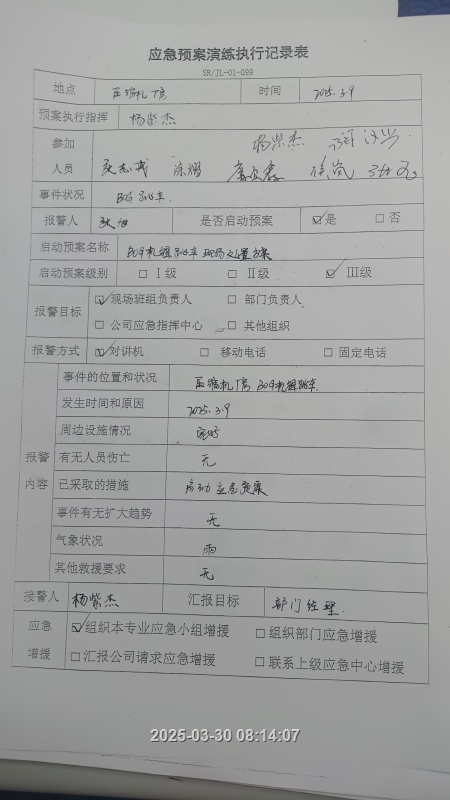 应急预案演练执行记录表
SR/JL-01-099
地点 压缩机厂房 时间 2025.3.9
预案执行指挥 杨紫杰
参加 杨紫杰
人员
事件状况
报警人 是否启动预案 ☑是 □否
启动预案名称 机组跳车现场处置方案
启动预案级别 □Ⅰ级 □Ⅱ级 ☑Ⅲ级
报警目标 ☑现场班组负责人 □部门负责人
□公司应急指挥中心 □其他组织
报警方式 ☑对讲机 □移动电话 □固定电话
报警内容
事件的位置和状况 压缩机厂房 机组跳车
发生时间和原因 2025.3.9
周边设施情况 完好
有无人员伤亡 无
已采取的措施 启动应急预案
事件有无扩大趋势 无
气象状况 雨
其他救援要求 无
接警人 杨紫杰 汇报目标 部门经理
应急增援 ☑组织本专业应急小组增援 □组织部门应急增援
□汇报公司请求应急增援 □联系上级应急中心增援
2025-03-30 08:14:07